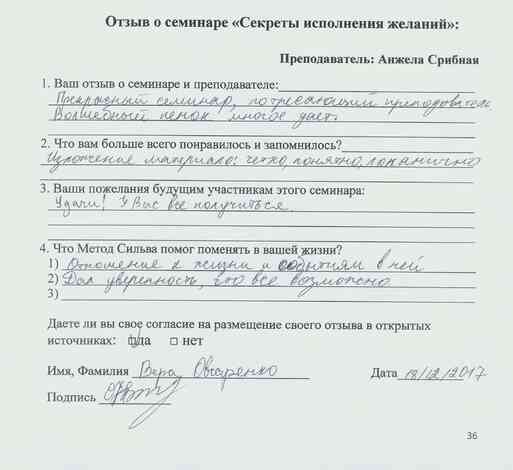 Отзыв о семинаре «Секреты исполнения желаний»:
Преподаватель: Анжела Срибная
1. Ваш отзыв о семинаре и преподавателе:
Прекрасный семинар, потрясающий преподаватель.
Волшебный пенок многое дает.
2. Что вам больше всего понравилось и запомнилось?
Изложение материала: четко, понятно, лаконично
3. Ваши пожелания будущим участникам этого семинара:
Удачи! У Вас все получиться.
4. Что Метод Сильва помог поменять в вашей жизни?
1) Отношение к жизни и событиям в ней
2) Дал уверенность, что все возможно
3)
Даете ли вы свое согласие на размещение своего отзыва в открытых
источниках: да нет
Имя, Фамилия Вера Овчаренко Дата 18/12/2017
Подпись
36